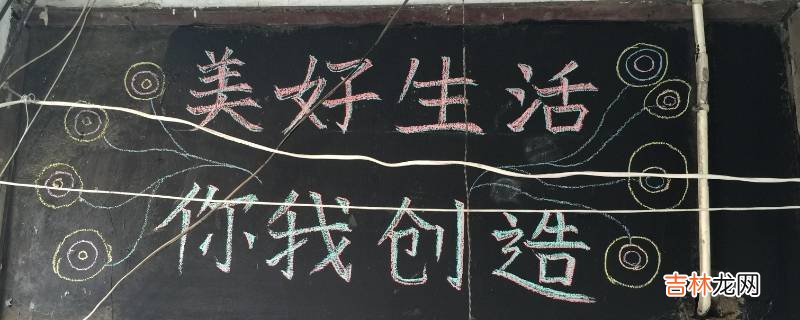 美好生活
你我创造
吉林龙网